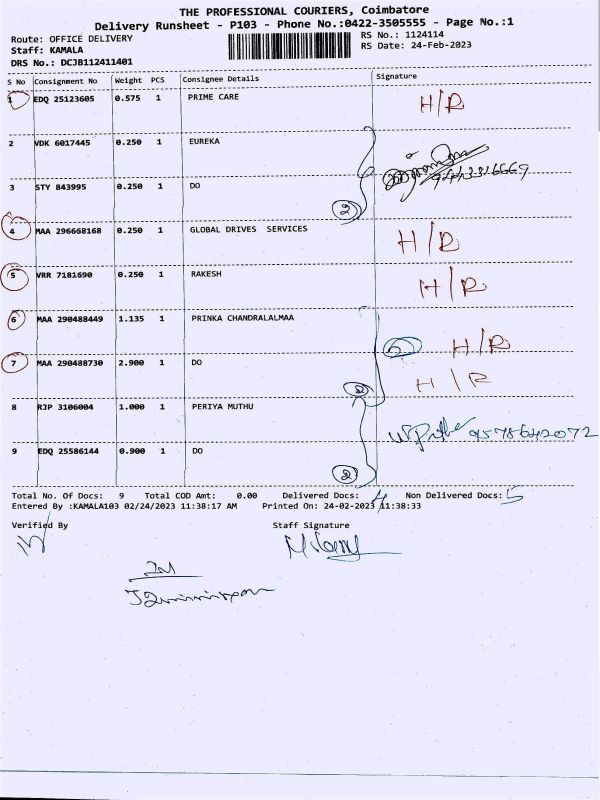 THE PROFESSIONAL COURIERS, Coimbatore
Delivery Runsheet - P103 - Phone No.:0422-3505555 - Page No.:1
Route: OFFICE DELIVERY RS No.: 1124114
Staff: KAMALA RS Date: 24-Feb-2023
DRS No.: DCJB112411401
S No Consignment No Weight PCS Consignee Details Signature
1 EDQ 25123605 0.575 1 PRIME CARE H/R
2 VDK 6017445 0.250 1 EUREKA
3 STY 843995 0.250 1 DO
2
4 MAA 296668168 0.250 1 GLOBAL DRIVES SERVICES H/R
5 VRR 7181690 0.250 1 RAKESH H/R
6 MAA 290488449 1.135 1 PRINKA CHANDRALALMAA H/R
7 MAA 290488730 2.900 1 DO H/R
2
8 RJP 3106004 1.000 1 PERIYA MUTHU 9578642072
9 EDQ 25586144 0.900 1 DO
2
Total No. Of Docs: 9 Total COD Amt: 0.00 Delivered Docs: 4 Non Delivered Docs: 5
Entered By :KAMALA103 02/24/2023 11:38:17 AM Printed On: 24-02-2023 11:38:33
Verified By Staff Signature